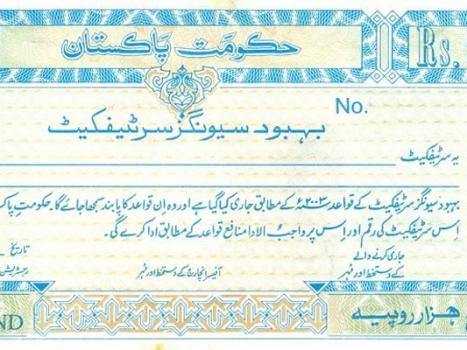 حکومتِ پاکستان
Rs.
No.
بہبود سیونگز سرٹیفکیٹ
یہ سرٹیفکیٹ
بہبود سیونگز سرٹیفکیٹ کے قواعد ۲۰۰۳ء کے مطابق جاری کیا گیا ہے اور وہ اِن قواعد کا پابند سمجھا جائے گا۔ حکومتِ
اِس سرٹیفکیٹ کی رقم اور اِس پر واجب الادا منافع قواعد کے مطابق ادا کرے گی۔
جاری کرنے والے
کے دستخط اور مُہر
آفیسر انچارج کے دستخط اور مُہر
تاریخ
ہزار روپیہ
ND